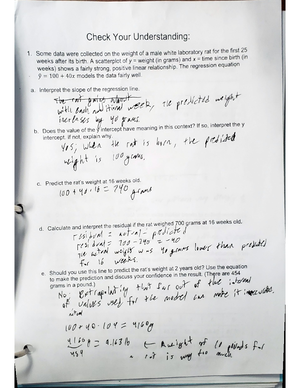 Check Your Understanding:
1. Some data were collected on the weight of a male white laboratory rat for the first 25
weeks after its birth. A scatterplot of y = weight (in grams) and x = time since birth (in
weeks) shows a fairly strong, positive linear relationship. The regression equation
ŷ = 100 + 40x models the data fairly well.
a. Interpret the slope of the regression line.
The rat gains about
with each additional week, the predicted weight
increases by 40 grams.
b. Does the value of the y intercept have meaning in this context? If so, interpret the y
intercept. If not, explain why.
Yes, when the rat is born, the predicted
weight is 100 grams.
c. Predict the rat's weight at 16 weeks old.
100 + 40 · 16 = 740 grams
d. Calculate and interpret the residual if the rat weighed 700 grams at 16 weeks old.
residual = actual - predicted
residual = 700 - 740 = -40
The actual weight was 40 grams lower than predicted
for 16 weeks.
e. Should you use this line to predict the rat's weight at 2 years old? Use the equation
to make the prediction and discuss your confidence in the result. (There are 454
grams in a pound.)
No. Extrapolating that far out of the interval
of values used for the model can make it inaccurate.
100 + 40 · 104 = 4160g
4160 g = 9.163 lb ← A weight of 10 pounds for
454 a rat is way too much.